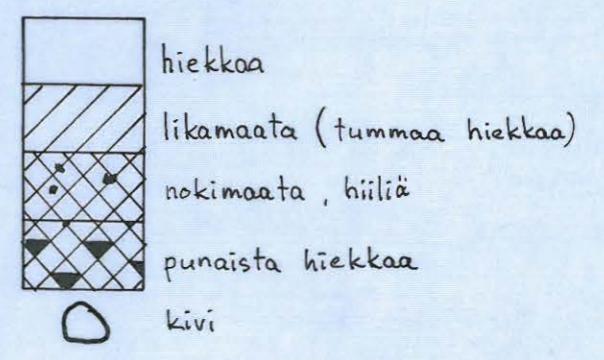 hiekkaa
likamaata (tummaa hiekkaa)
nokimaata, hiiliä
punaista hiekkaa
kivi